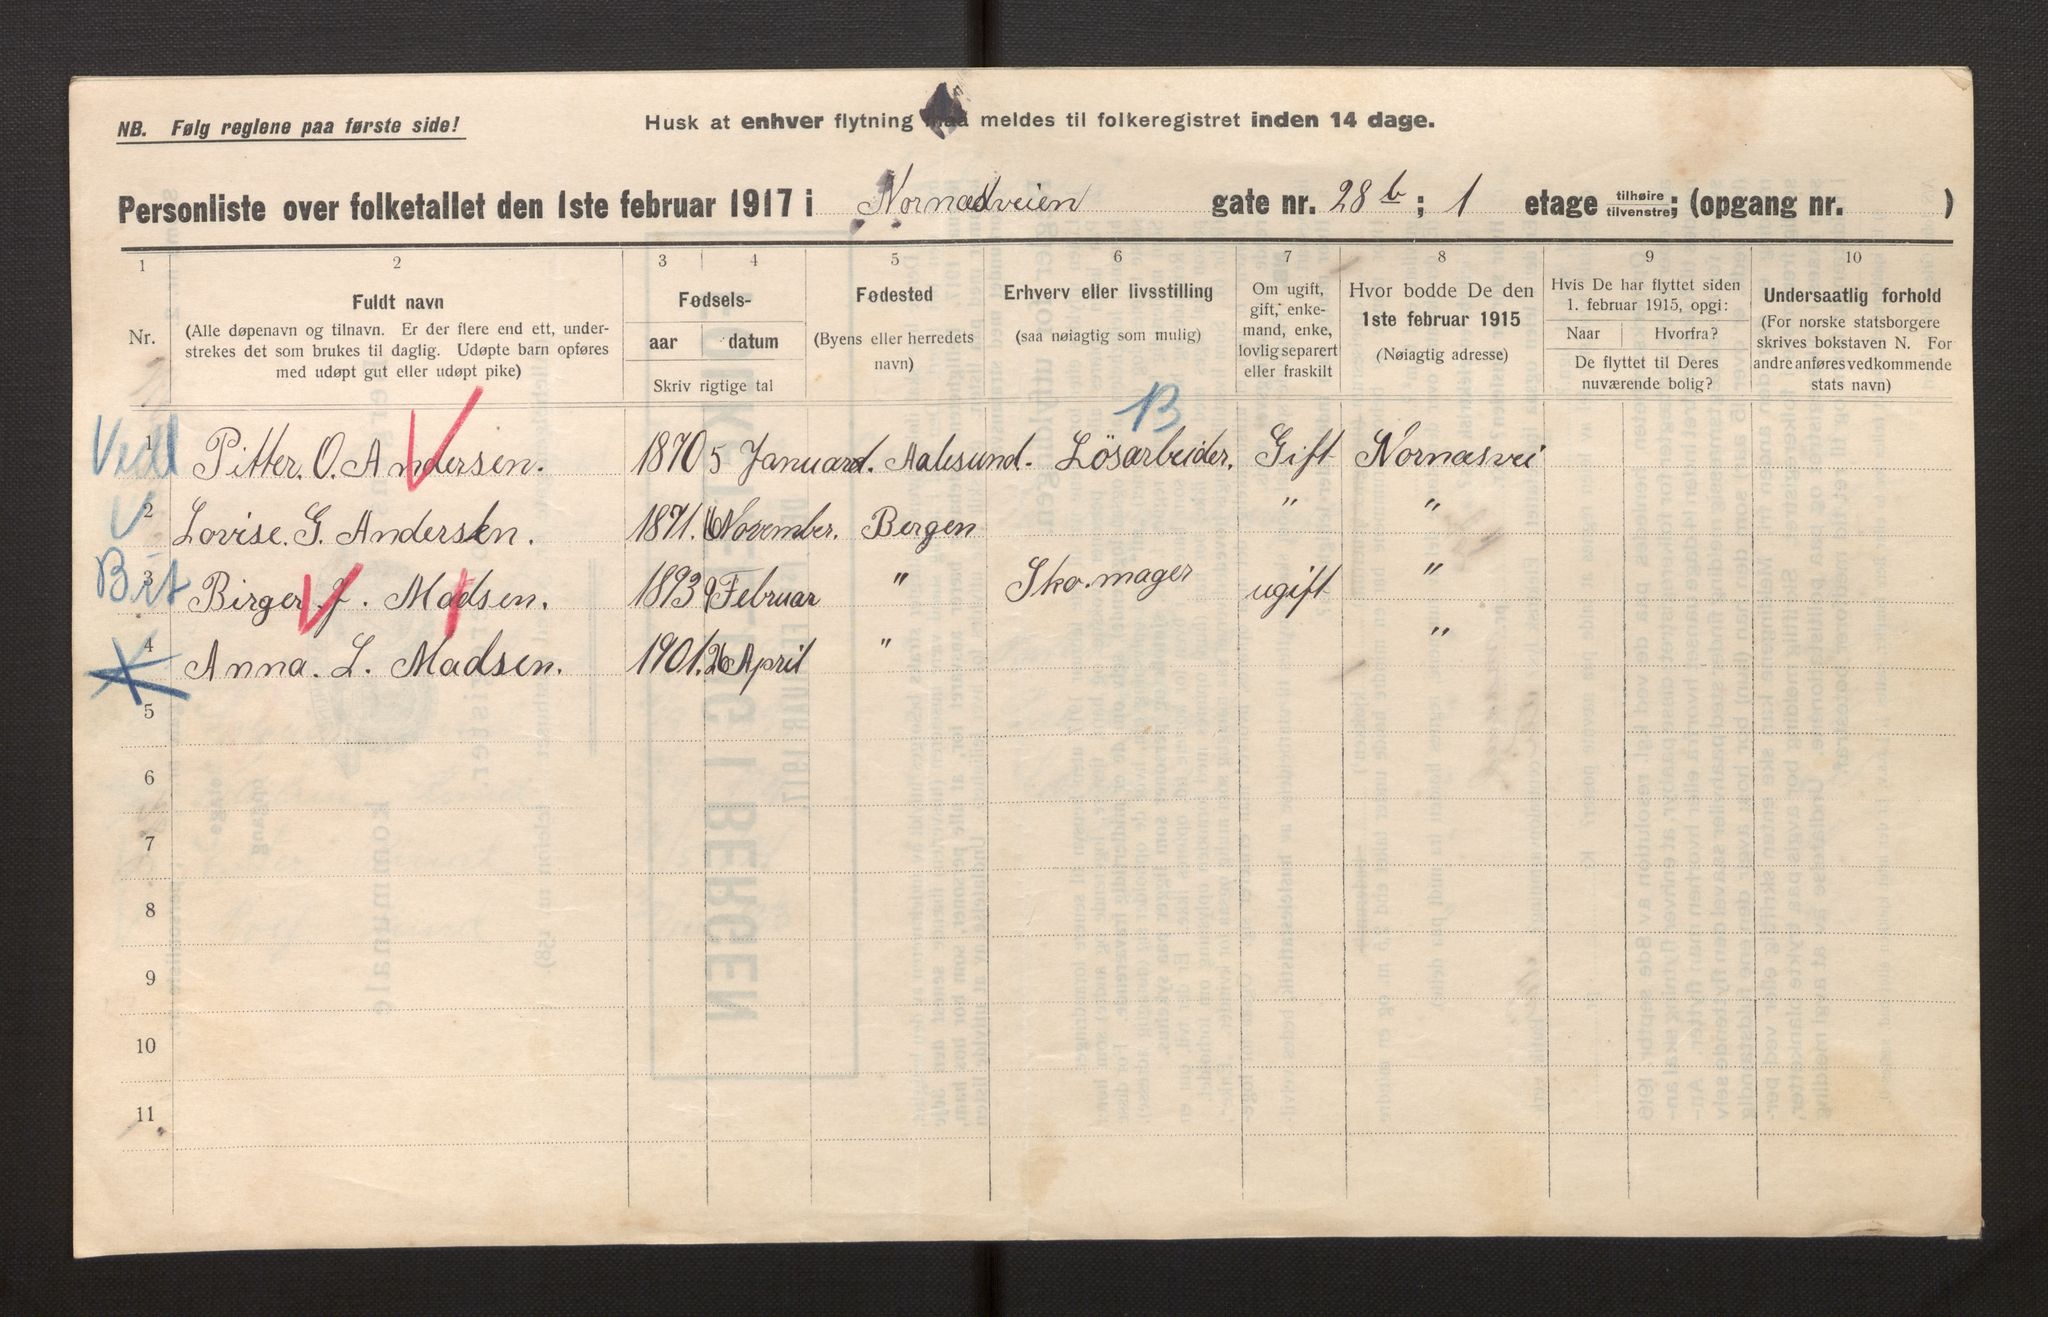 NB. Følg reglene paa første side!
Husk at enhver flytning maa meldes til folkeregistret inden 14 dage.
Personliste over folketallet den 1ste februar 1917 i Nornæsveien gate nr. 28 b; 1 etage tilhøire/tilvenstre; (opgang nr. )
1 2 3 4 5 6 7 8 9 10
Nr.
Fuldt navn
(Alle døpenavn og tilnavn. Er der flere end ett, under-
strekes det som brukes til daglig. Udøpte barn opføres
med udøpt gut eller udøpt pike)
Fødsels-
aar datum
Skriv rigtige tal
Fødested
(Byens eller herredets
navn)
Erhverv eller livsstilling
(saa nøiagtig som mulig)
Om ugift,
gift, enke-
mand, enke,
lovlig separert
eller fraskilt
Hvor bodde De den
1ste februar 1915
(Nøiagtig adresse)
Hvis De har flyttet siden
1. februar 1915, opgi:
Naar Hvorfra?
De flyttet til Deres
nuværende bolig?
Undersaatlig forhold
(For norske statsborgere
skrives bokstaven N. For
andre anføres vedkommende
stats navn)
B
1 Pitter. O. Andersen. 1870 5 Januar. Aalesund. Lösarbeider. Gift Nornæsvei
2 Lovise. G. Andersen. 1871. 16 November. Bergen " "
3 Birger J. Madsen. 1893 9 Februar " Sko.mager ugift "
4 Anna. L. Madsen. 1901. 26 April " "
5
6
7
8
9
10
11